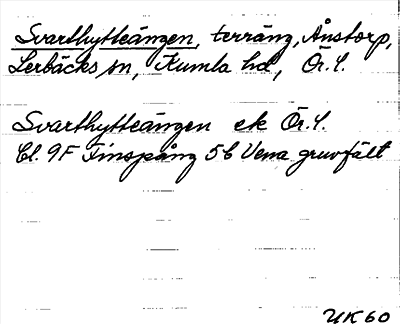 Svarthytteängen, terräng, Ånstorp,
Lerbäcks sn, Kumla hd, Ör. l.
Svarthytteängen ek Ör. l.
Bl. 9F Finspång 5b Vena gruvfält
UK 60